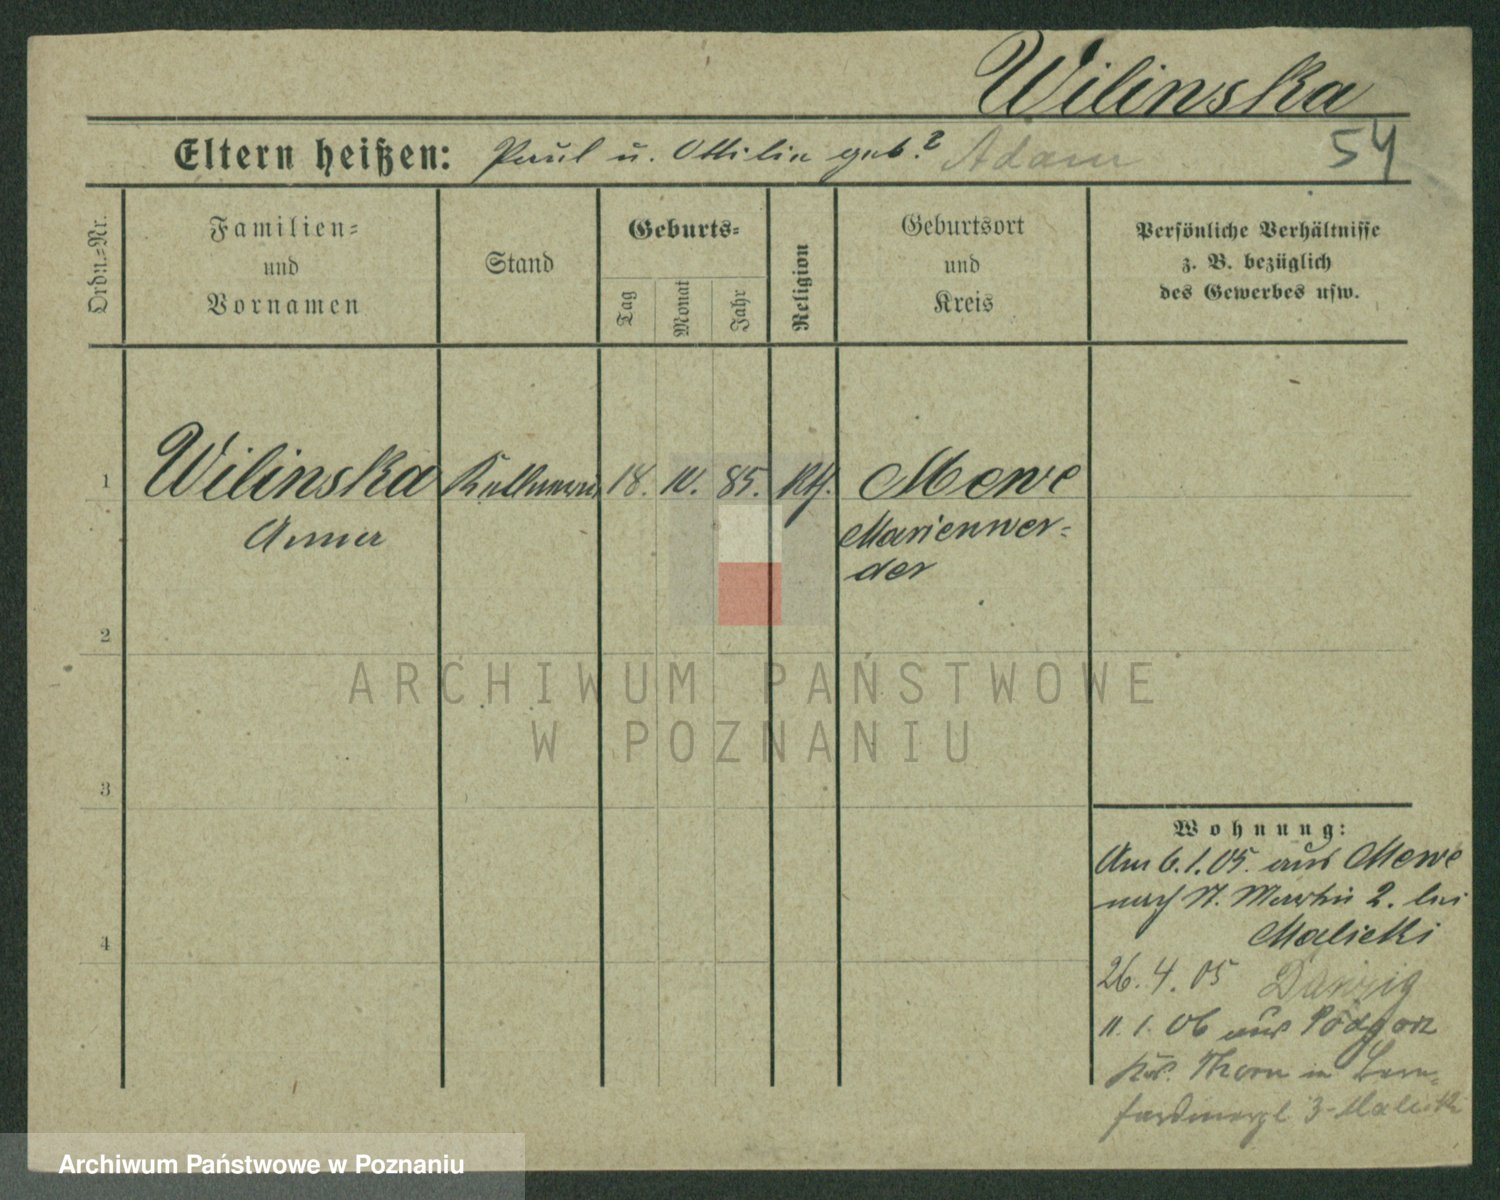 Wilinska
Eltern heißen: Paul u. Ottilie geb.? Adam 54
Ordn.=Nr.
Familien=
und
Vornamen
Stand
Geburts=
Tag
Monat
Jahr
Religion
Geburtsort
und
Kreis
Persönliche Verhältnisse
z. B. bezüglich
des Gewerbes usw.
1 Wilinska Kellnerin 18. IV. 85. kth. Mewe
Anna Marienwer-
der
2
ARCHIWUM PAŃSTWOWE
W POZNANIU
3
Wohnung:
Am 6.1.05. aus Mewe
nach St. Martin 2. bei
4 Malicki
26. 4. 05 Danzig
11. 1. 06 aus Podgorz
Krs. Thorn in
3 Malicki
Archiwum Państwowe w Poznaniu